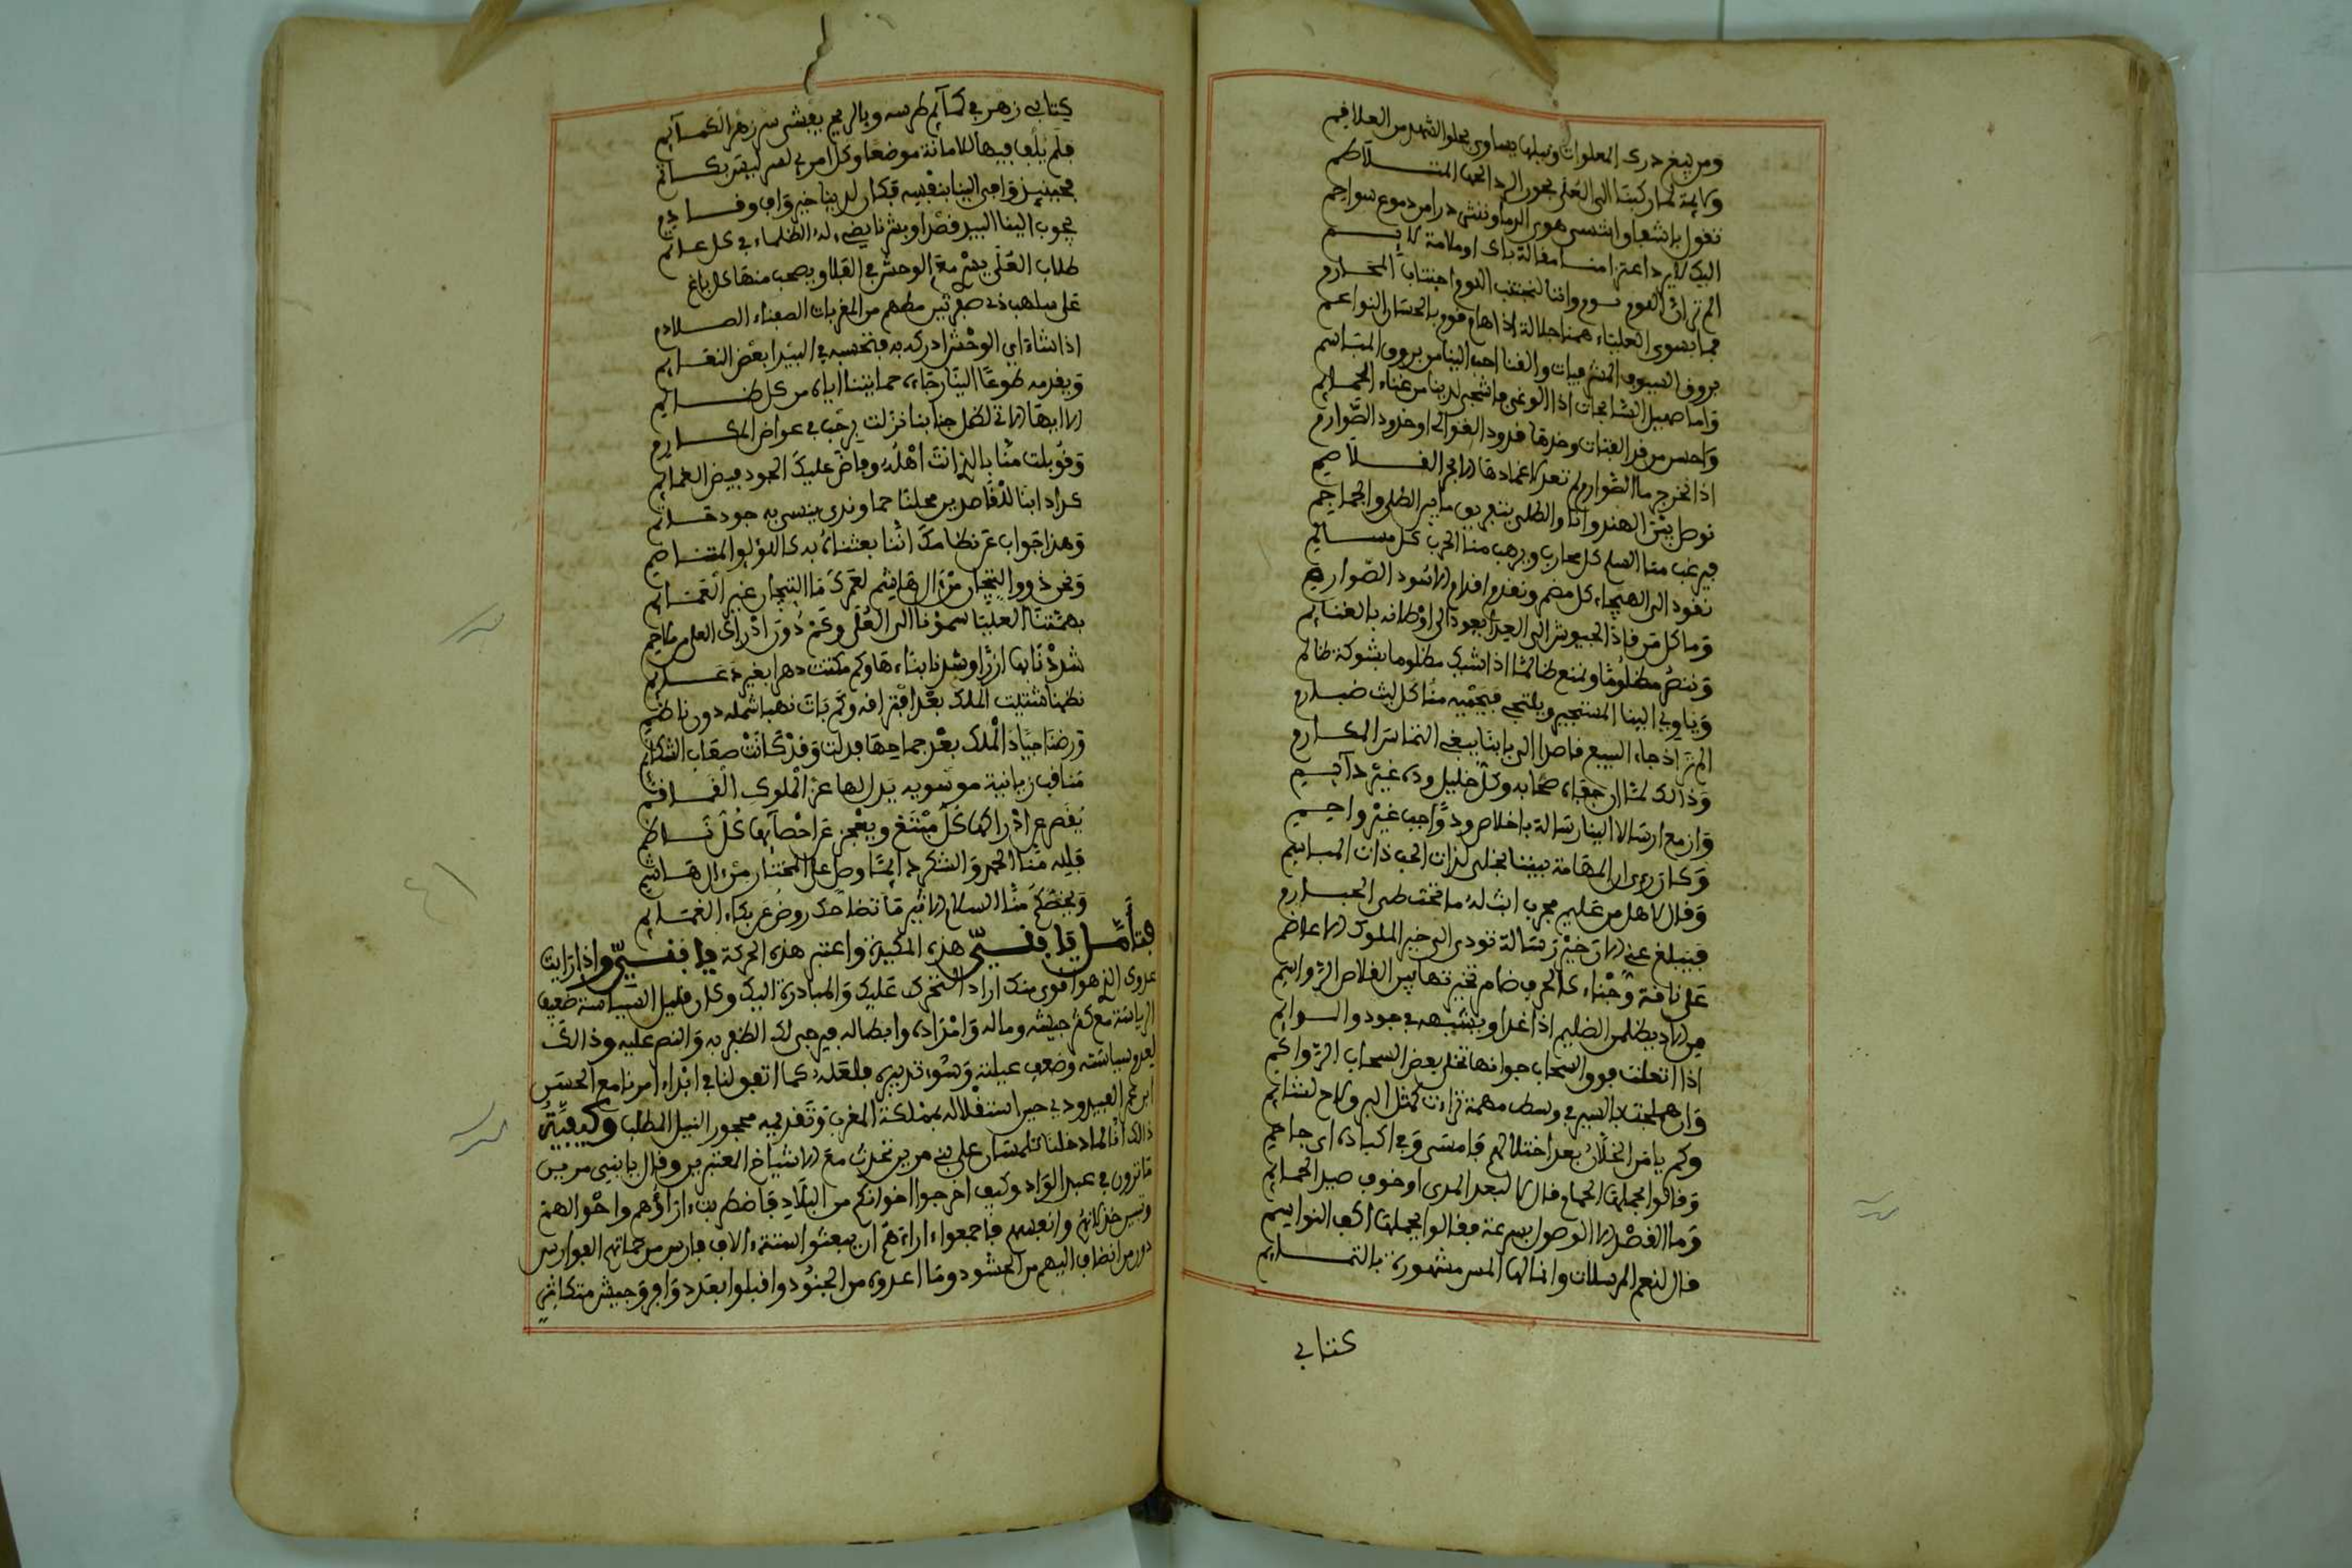 ومن يبغ درك المعلوات ونيلها يساوى بحلو الشهد مر العلاقم
ولايمة لما ركبنا الى العلى بحور الردى المتلاطم
تقول باشفاق اتنسى هوى الدما وننثى درا من دموع سواجم
اليك لا يرد اعتزامنا مقالة باك او ملامة لايم
الم تر ان اللوم لوم واننا لنجتنب اللوم اجتناب المحارم
فما بسوى العلياء همنا جلالة اذا هام قوم بالحسان النواعم
بروق السيوف المشرفيات والفنا احب الينا من بروق المباسم
واما صهيل السابحات اذا الوغى فاشجى لدينا من غناء الحمايم
واحسن من قد الفتات وخدها قدود العوالى او خدود الصوارم
اذا نحن جردنا الصوارم لم تعد لاغمادها الا بجز الغلاصم
نواصل بين الهندوانى والطلى بتفريق ما بين الطلى والجماجم
فيرغب منا السلم كل محارب ويرهب منا الحرب كل مسالم
نقود الى الهيجاء كل مضمر ونقدم اقدام الاسود الضوارم
وما كل من قاد الجيوش الى العدا يعود الى اوطانه بالغنايم
وننصر مظلوما ونمنع ظالما اذا شيك مظلوما بشوكة ظالم
وياوى الينا المستجير ويلتجى فيحميه منا كل ليث ضبارم
الم تر اذ جاء السبيع قاصدا الى بابنا يبغى التماس المكارم
وذالك لما ان جفاه صحابه وكل خليل وده غير دايم
وازمع ارسالا الينا رسالة باخلاص ود واجب غير واجم
وكان راى ان المهامه بيننا نخلى لذات الحب ذات المباسم
وقال الا هل من عليم مجرب ابث له ما تحت طى الحيازم
فيبلغ عنى لارتى خير رسالة تودى الى خير الملوك الاعاظم
على ناقة وجناء كالحرف ضامر تخيرتها بين القلاص الرواسم
من الاد يظلمن الظليم اذا عدا ويشبهه فى جوده والسوايم
اذا اتعلت فوق السحاب جوابها تخلى بعض السحاب الرواكم
وان هملجت بالسير فى وسط مهمه نزلت كمثل البرق لاح لشايم
وكم يا من الخلان بعد اختلالهم فامسى وفى اكباده اى جاحم
وقالوا بحملها الحمام فقال لها لبعد المدى او خوف صيد الحمايم
وما الفصل الا الوصل بسرعة فقالوا بحملها اكف النواسم
فقال لنعم المرسلات وانما لها السر مشهورة بالتمايم
كتابى
كتابى زهر فى كمايم طرسه وبالريح يفشى سر زهر الكمايم
فلم يلف فيها للامانة موضعا وكل امرى للسر ليس بكاتم
فحينيذ وافى الينا بنفسه فكان لدينا خير واف وقادم
يجوب الينا البيد قصدا وبشرنا يضىء له الظلماء فى كل عاتم
طلاب العلى يسرى مع الوحش فى الفلا ويصحب منها كل باغ
على سلهب ذى صعدتين مطهم من المغربات الصفناء الصلادم
اذا شاء اى الوحش ادركه به فتحسبه فى البيدا بعض النعايم
ويقدمه طوعا الينا رجاءه حمايتنا اياه من كل ظالم
الا ايها الاتى لظل جنابنا نزلت برحب فى عراض المكارم
وقوبلت منا بالذى انت اهله وفاض عليك الجود فيض الغمايم
كذا دابنا للقاصدين محلنا حما وندى ينسى به جود حاتم
وهذا جواب عن نظامك اننا بعثناه بدى اللؤلؤ المتناظم
ونحن ذوو التيجان من ال هاشم لعمرك ما التيجان غير العمايم
بهمتنا العليا سمونا الى العلى وكم دون ادراك العلى من ملاحم
شددنا لها ازرا وشدنا بناءها وكم مكثت دهرا بغير دعايم
نظمنا شتيت الملك بعد افتراقه وكم بات نهبا شمله دون ناظم
ورضنا جياد الملك بعد جماحها فدلت وقد كانت صعاب الشكايم
مناقب زيانية موسوية يدل لها عز الملوك القماقم
يقصر عن ادراكها كل مبتغ ويعجز عن احصايها كل ناظم
فلله منا الحمد والشكر دايما وصلى على المختار من ال هاشم
ويخصكم منا السلام الاثير ما تضاحك روض عن بكاء الغمايم
فتأمل يا بنى هذه المكيدة واعتبر هذه الحركة يا بنى واذا رايت
عدوك الذى هو اقوى منك اراد التحرك عليك والمبادرة اليك وكان قليل السياسة ضعيف
الرياسة مع كثرة جيشه وماله وامداده وابطاله فيرجى لك الظفر به والنصر عليه وذالك
لعدم سياسته وضعف عيلته وسوء تدبيره فلعله كما اتفق لنا فى ابتداء امرنا مع الحسن
ابن عمر العبدودى حين استقلاله بمملكة المغرب وتقديمه محجور النبيل المطلب وكيفية
ذالك انا لما دخلنا تلمسان على بنى مرين تحدث مع الاشياخ المعتبرين وقال يا بنى مرين
ما ترون فى عبد الواد وكيف اخرجوا اخوانكم من البلاد فاضطربت اراؤهم واحوالهم
وتبين خذلانهم وانفسهم فاجمعوا اراءهم ان يبعثوا الستة الاف فارس من حماتهم الفوارس
دون من انضاف اليهم من الحشود وما اعدوه من الجنود واقبلوا بعدد وافر وجيش متكاثر